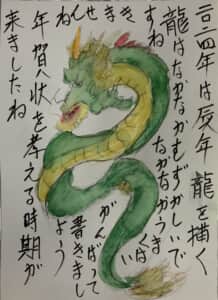 二〇二四年は辰年 龍を描く
龍はなかなかむずかしいで
すね
なかなかうま
くは
い
き
ませ
ん
ね
がんばって
書きまし
ょう
年賀状を考える時期が
来ましたね